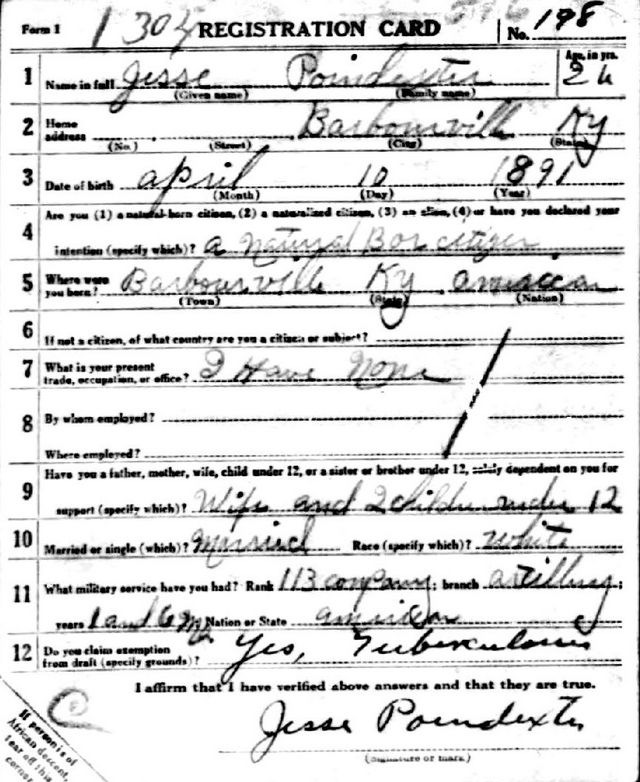 Form 1 1304 REGISTRATION CARD No. 198
1 Name in full Jesse Poindexter Age, in yrs.
(Given name) (Family name) 26
2 Home address Barbourville Ky
(No.) (Street) (City) (State)
3 Date of birth april 10 1891
(Month) (Day) (Year)
4 Are you (1) a natural-born citizen, (2) a naturalized citizen, (3) an alien, (4) or have you declared your
intention (specify which)? a natural Bor citizen
5 Where were you born? Barbourville Ky american
(Town) (State) (Nation)
6 If not a citizen, of what country are you a citizen or subject?
7 What is your present trade, occupation, or office? I Have None
8 By whom employed?
Where employed?
9 Have you a father, mother, wife, child under 12, or a sister or brother under 12, solely dependent on you for
support (specify which)? Wife and 2 children under 12
10 Married or single (which)? Married Race (specify which)? white
11 What military service have you had? Rank 113 company; branch artillury;
years 1 and 6 Mo Nation or State american
12 Do you claim exemption from draft (specify grounds)? Yes, Tuberculosis
I affirm that I have verified above answers and that they are true.
Jesse Poindexter
(Signature or mark)
If person is of
African descent,
tear off this
corner